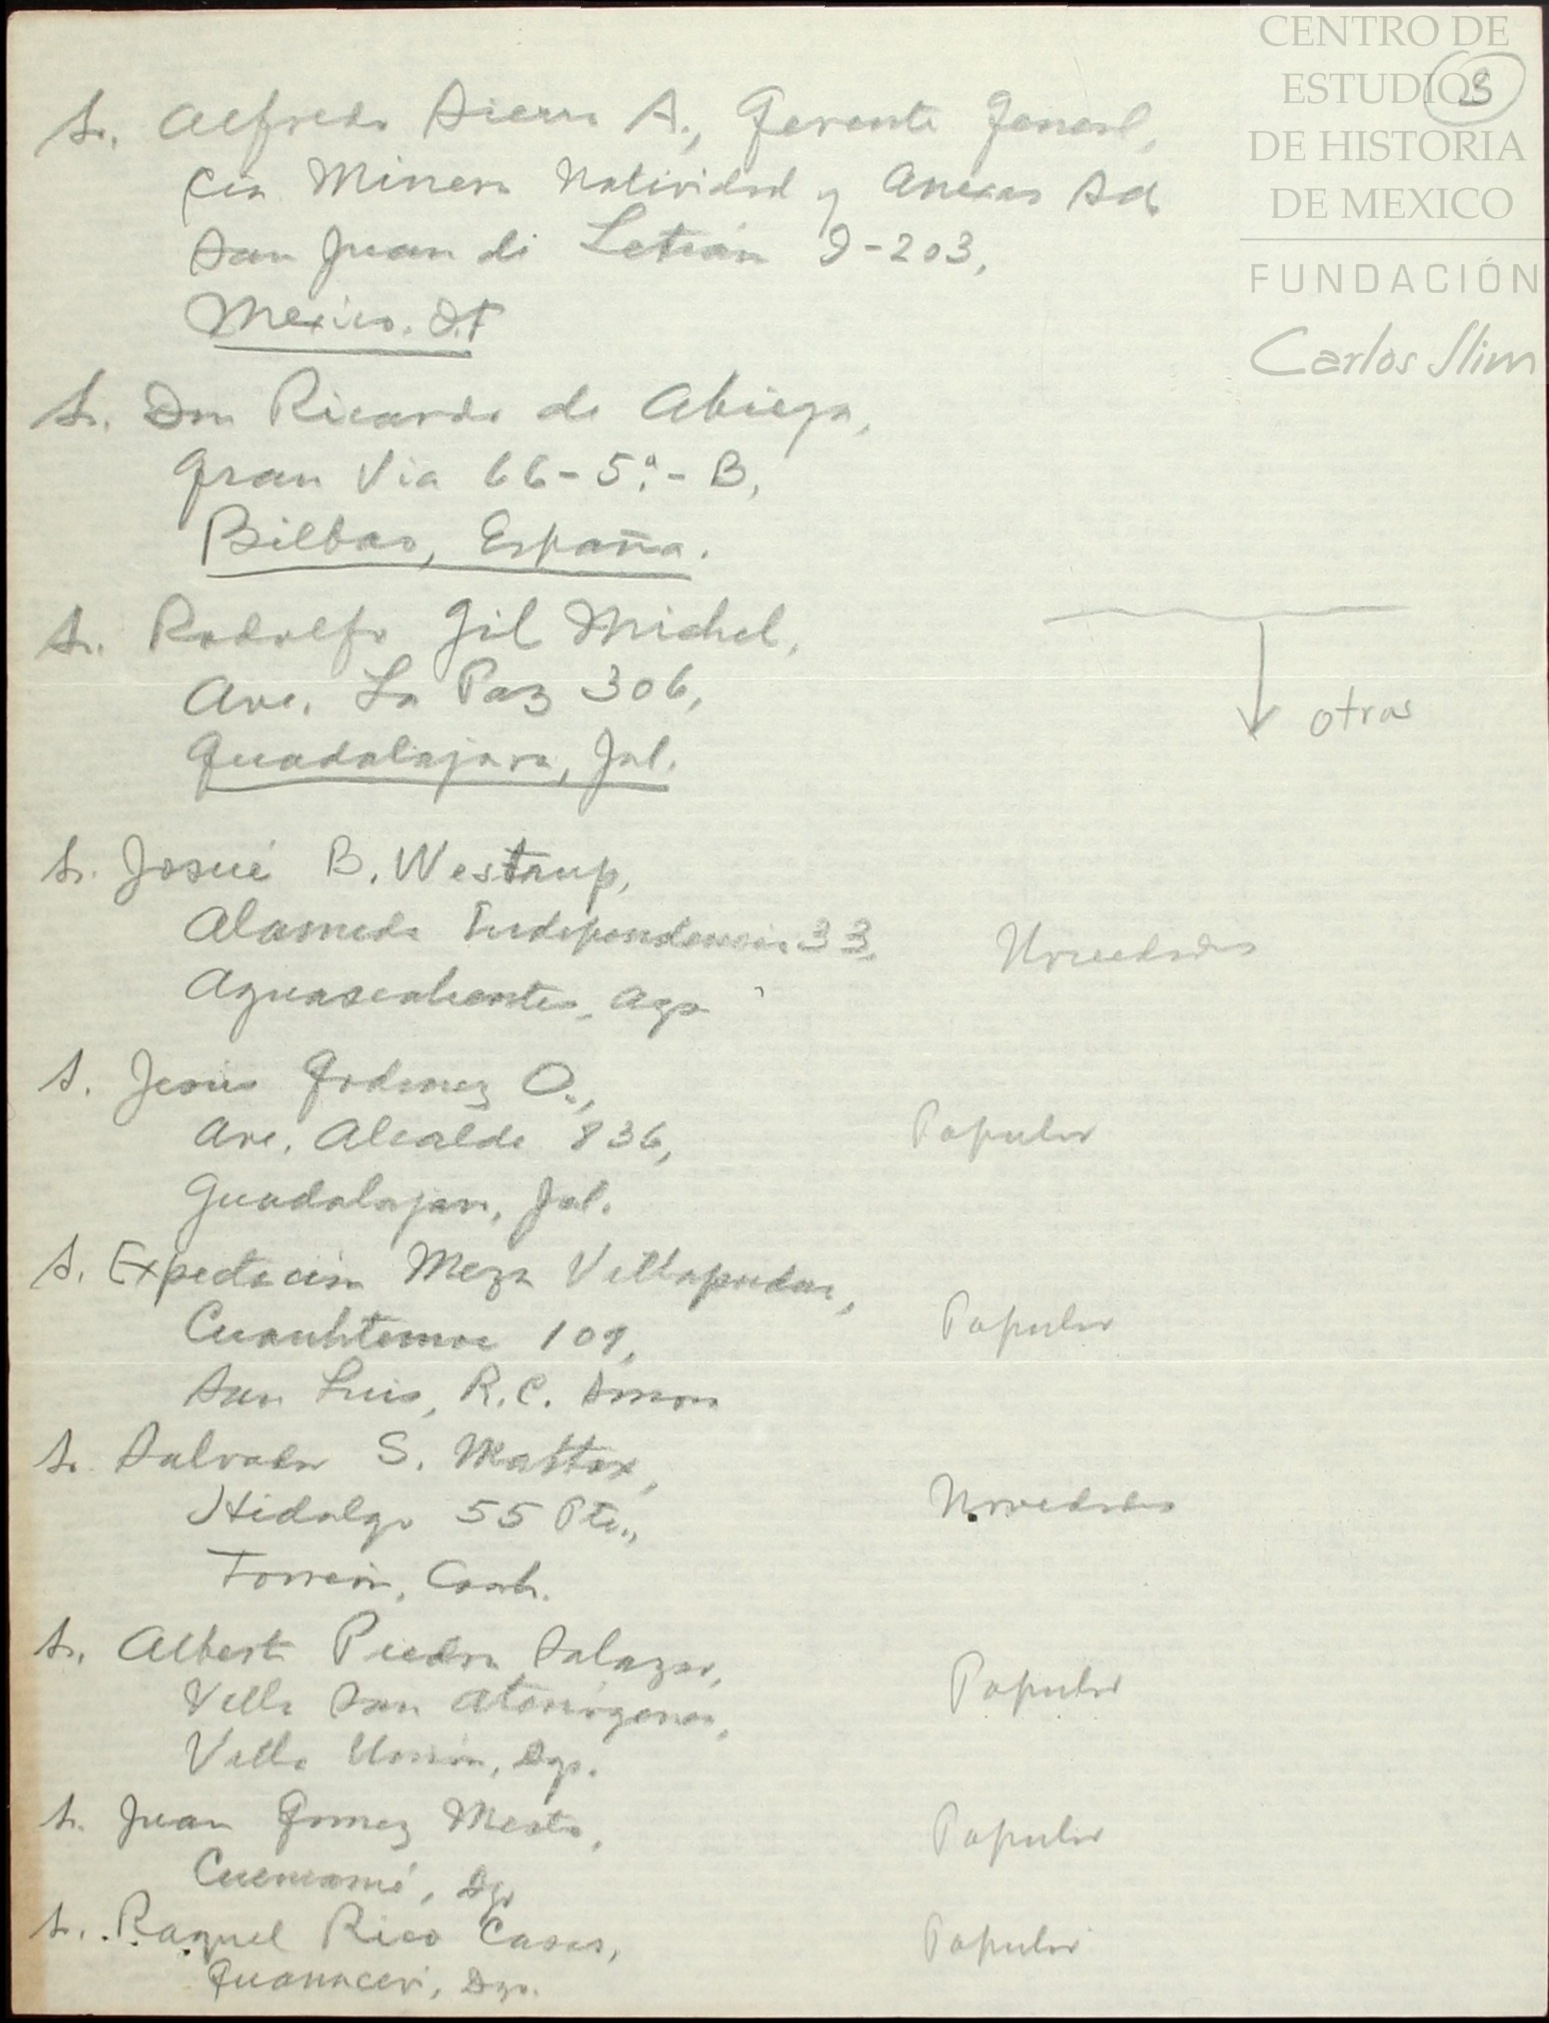 CENTRO DE
ESTUDIOS
DE HISTORIA
DE MEXICO
FUNDACIÓN
Carlos Slim
3
Sr. Alfredo Sierra A., Gerente General,
Cia Minera Natividad y Anexas S.A.
San Juan de Letrán 9-203,
Mexico. D.F
Sr. Don Ricardo de Abiega,
Gran Via 66-5º-B,
Bilbao, España.
Sr. Rodolfo Gil Michel,
Ave. La Paz 306,
Guadalajara, Jal.
otras
Sr. Josué B. Westrup,
Alameda Independencia 33, Novedades
Aguascalientes, Ags
Sr. Jesús Godinez O.,
Ave. Alcalde 836, Popular
Guadalajara, Jal.
Sr. Expectación Meza
Cuauhtemoc 109, Popular
San Luis, R.C. Sonora
Sr. Salvador S. Mattox,
Hidalgo 55 Pte., Novedades
Torreón, Coah.
Sr. Alberto Piedra Salazar,
Villa San Atenógenes, Popular
Villa Unión, Dgo.
Sr. Juan Gomez Mesta, Popular
Cuencamé, Dgo
Sr. Raquel Rico Casas, Popular
Guanaceví, Dgo.